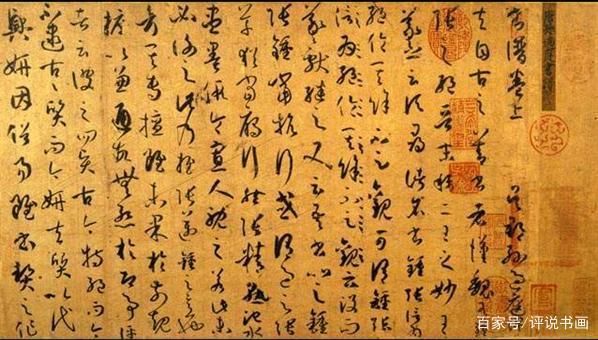 書譜卷上　吳郡孫過庭
夫自古之善書者漢魏有鍾
張之絕晉末稱二王之妙王
羲之云頃尋諸名書鍾張信為
絕倫其餘不足觀可謂鍾張
信為絕倫其餘不足觀云沒而
羲獻繼之又云吾書比之鍾
張鍾當抗行或謂過之張
草猶當雁行然張精熟池水
盡墨假令寡人耽之若此未
必謝之此乃推張邁鍾之意也
考其專擅雖未果於前規
摭以兼通故無慚於即事評
者云彼之四賢古今特絕而今
不逮古古質而今妍夫質以代
興妍因俗易雖書契之作
百家号/评说书画